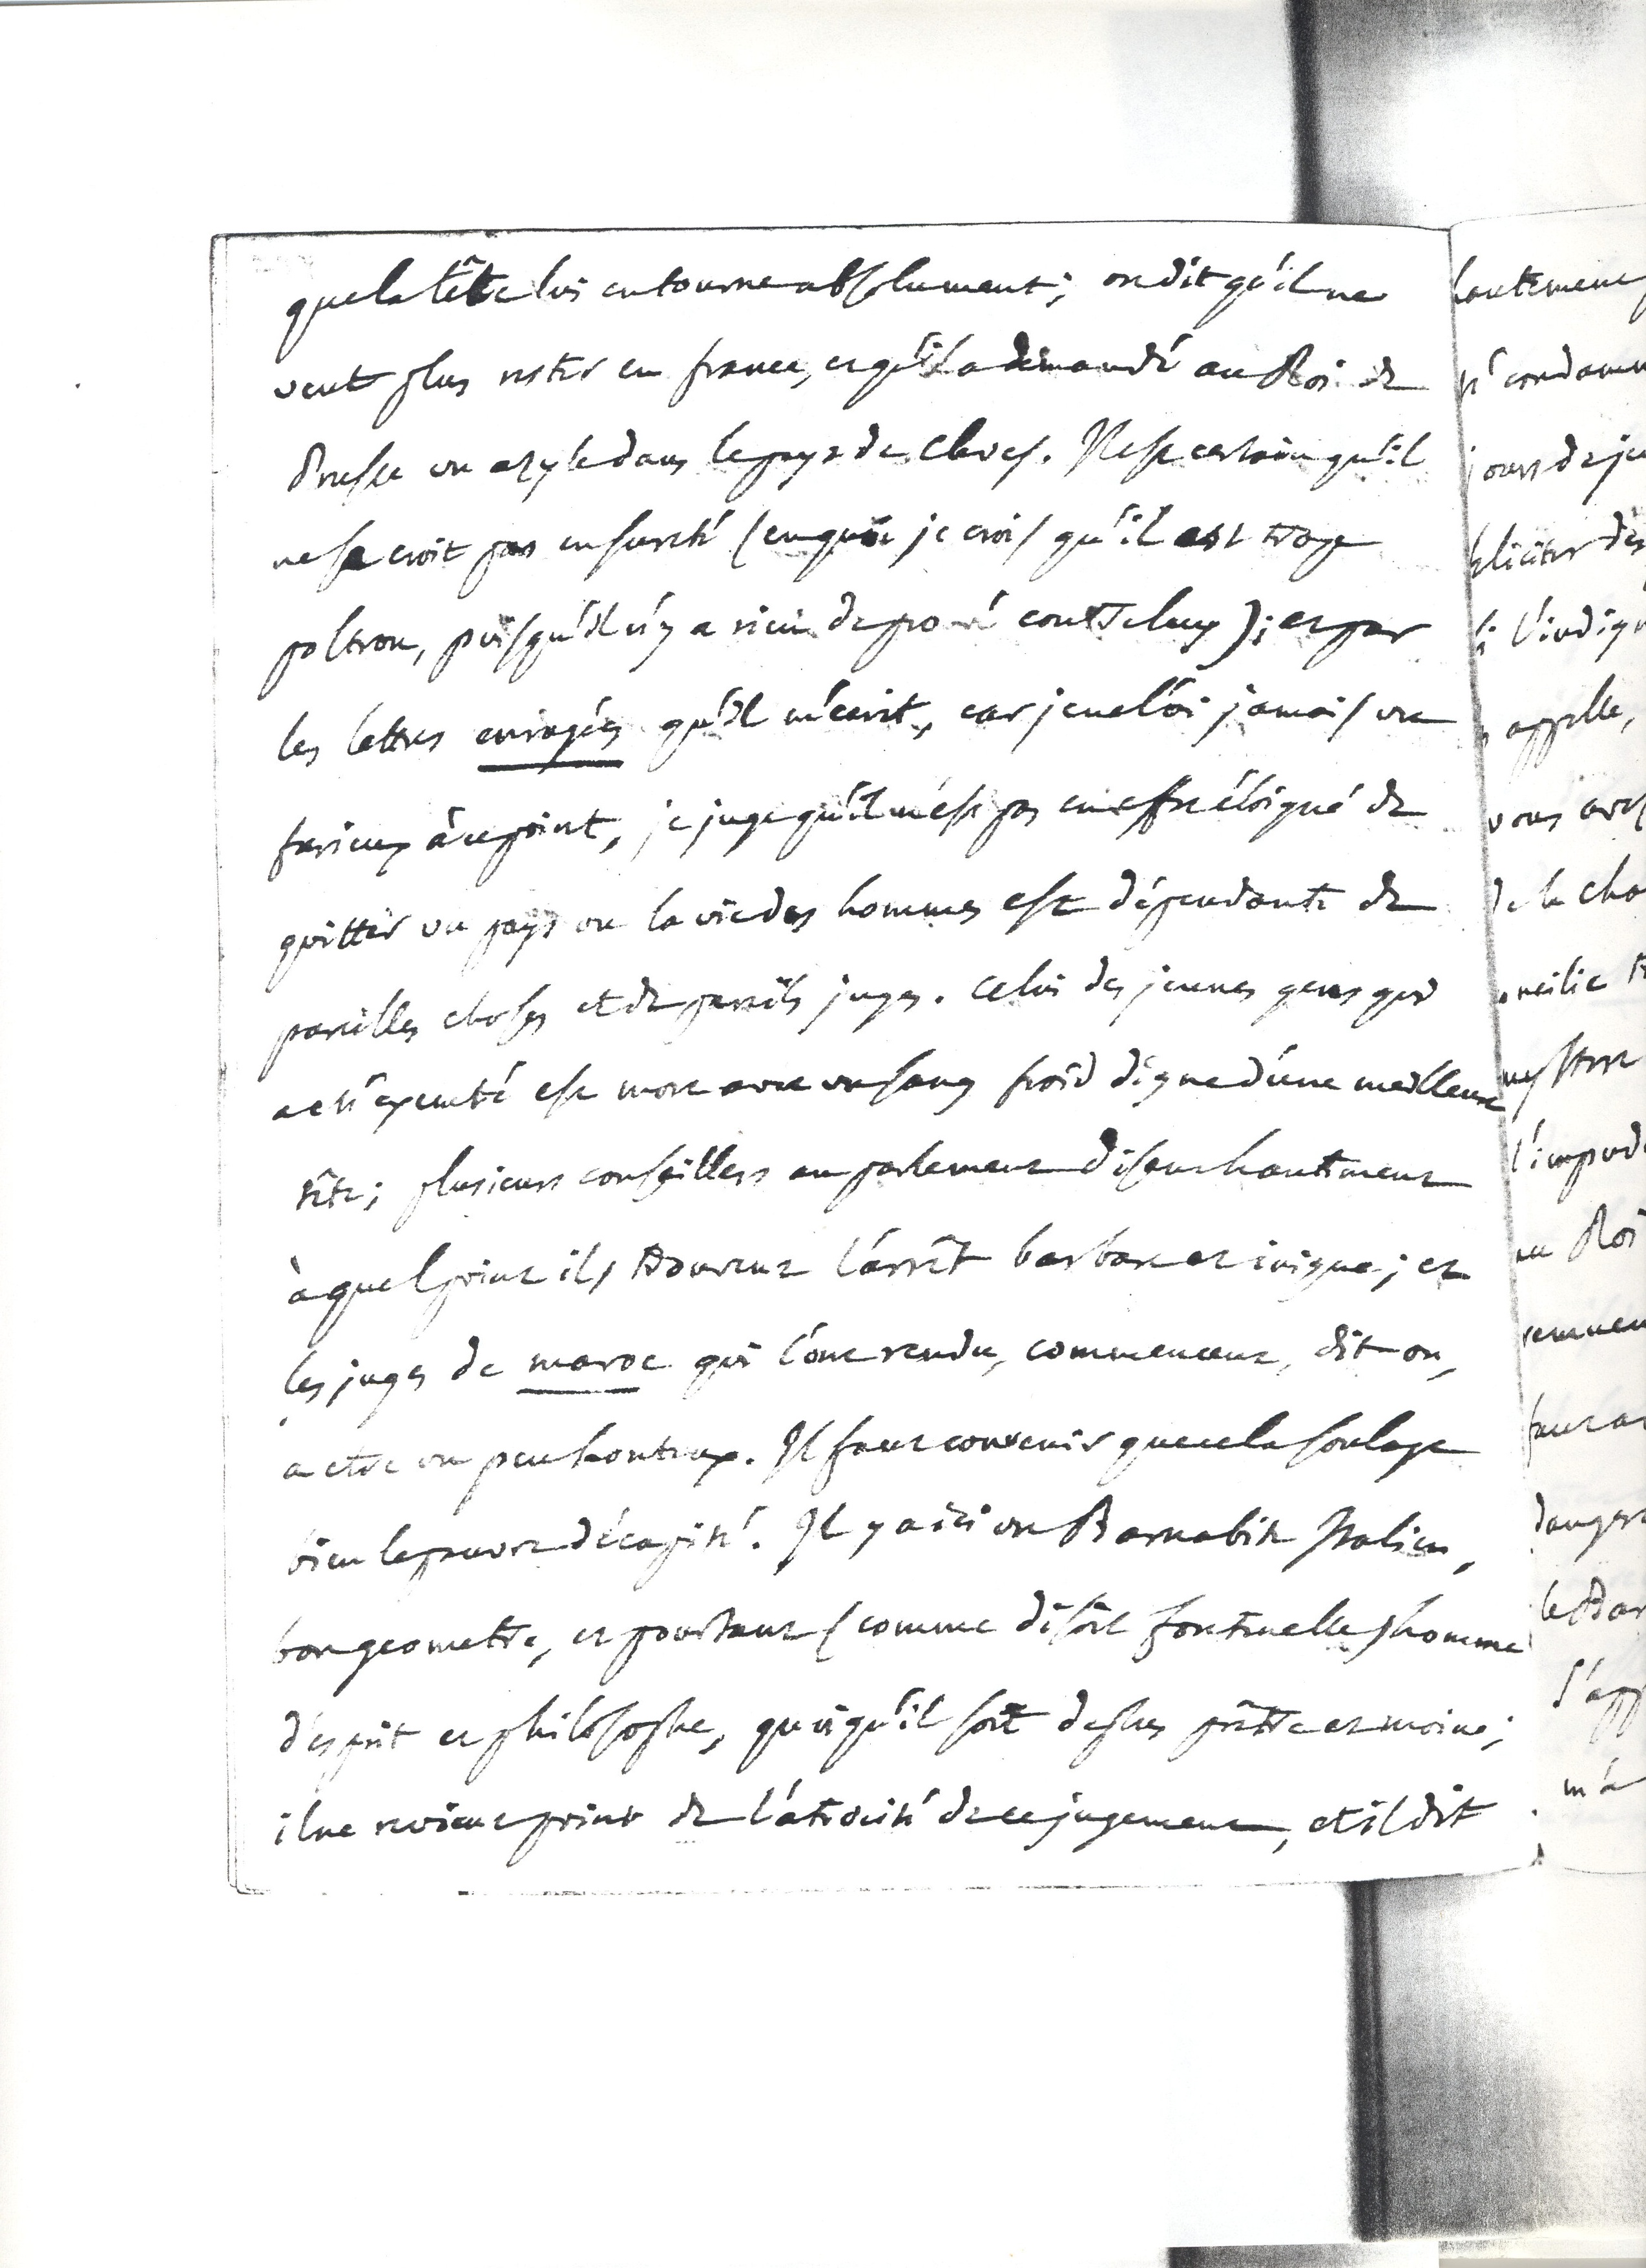 que la tête lui en tourne absolument; on dit qu'il ne
veut plus rester en france, et qu'il a demandé au Roi de
Prusse un azyle dans le pays de Cleves. Il est certain qu'il
ne se croit pas en sureté (en quoi je crois qu'il est trop
poltron, puisqu'il n'y a rien de prouvé contre luy); et par
les lettres enragées qu'il m'ecrit, car je ne l'ai jamais vu
furieux à ce point, je juge qu'il n'est pas en effet éloigné de
quitter un pays ou la vie des hommes est dépendante de
pareilles choses et de pareils juges. Celui des jeunes gens qui
a eté executé est mort avec un sang froid digne d'une meilleure
tête; plusieurs conseillers au parlement disent hautement
à quel point ils trouvent l'arrêt barbare et inique; et
les juges de maroc qui l'ont rendu, commencent, dit-on,
a etre un peu honteux. Il faut convenir que cela soulage
bien le pauvre décapité. Il y a ici un Barnabite Italien,
bon geometre, et pourtant (comme disoit fontenelle) homme
d'esprit et philosophe, quoiqu'il soit de plus prêtre et moine;
il ne revient point de l'atrocité de ce jugement, et il dit
hautement
té condamn
jours de ju
féliciter des
l'indign
appelle,
vous avez
de la cho
l'impud
au Roi
danger
le Bar
s'app
m'a